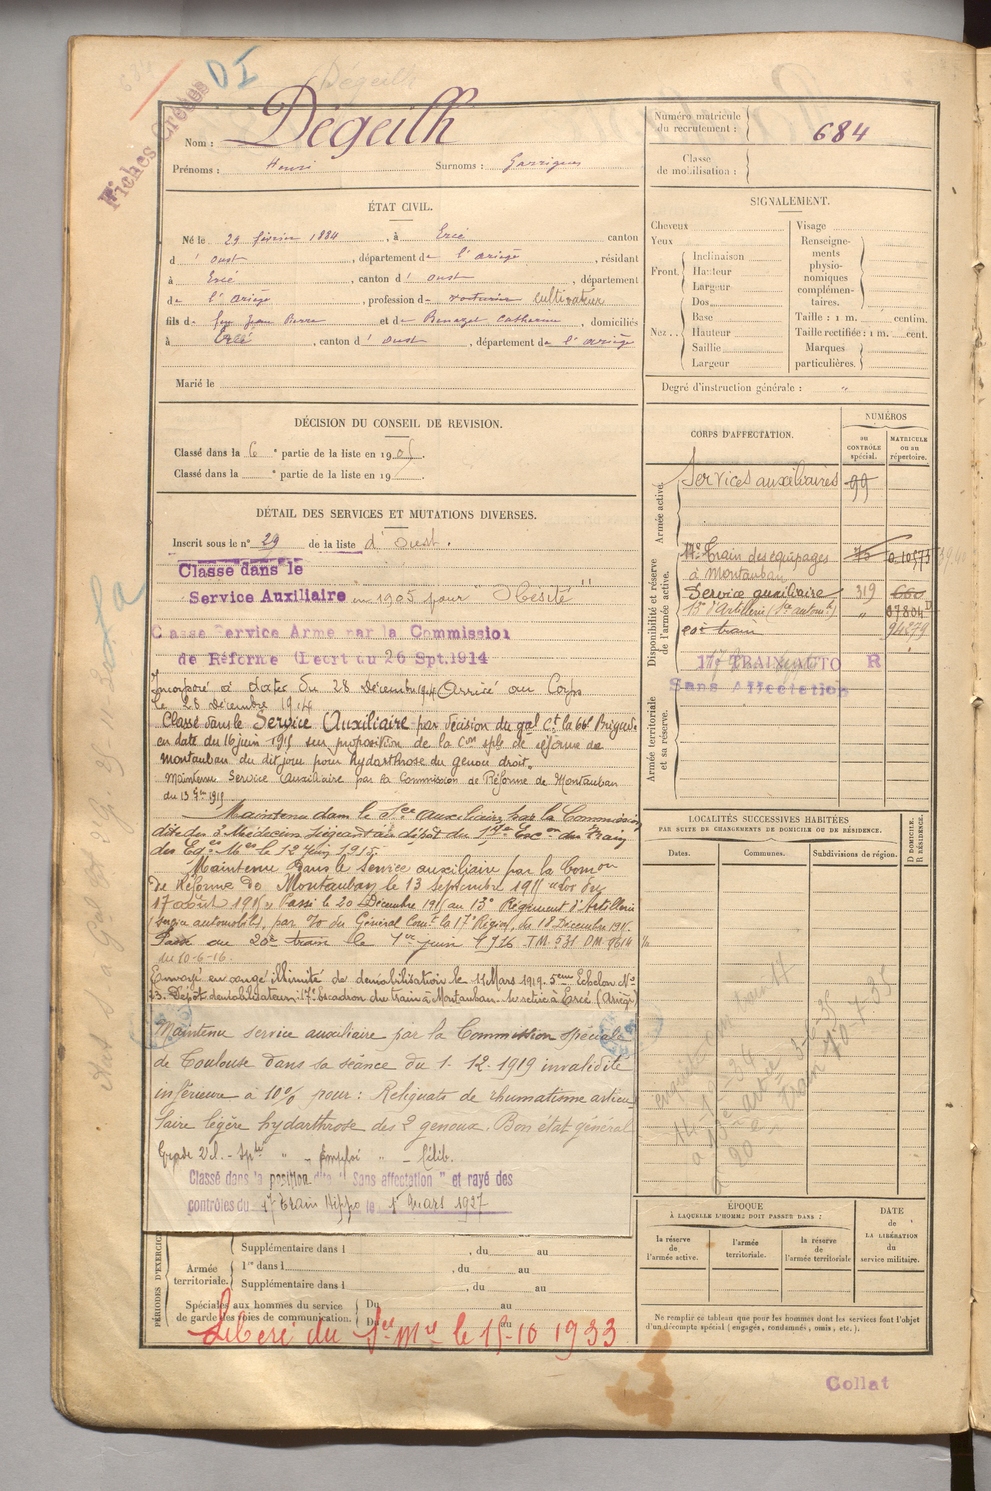 Fiches Créées
DI
Degeilh
Nom : Dégeilh
Prénoms : Henri Surnoms : Garrigues
Numéro matricule du recrutement : 684
Classe de mobilisation :
ÉTAT CIVIL.
Né le 29 février 1884, à Ercé canton
d' Oust, département de l'ariège, résidant
à Ercé, canton d' oust, département
de l'ariège, profession de voiturier cultivateur
fils de feu Jean Pierre et de Benazet Catherine, domiciliés
à Ercé, canton d' oust, département de l'ariège
Marié le
SIGNALEMENT.
Cheveux
Yeux
Front. Inclinaison
Hauteur
Largeur
Nez. Dos
Base
Hauteur
Saillie
Largeur
Visage
Renseignements physionomiques complémentaires.
Taille : 1 m. centim.
Taille rectifiée : 1 m. cent.
Marques particulières.
Degré d'instruction générale : "
DÉCISION DU CONSEIL DE REVISION.
Classé dans la 6e partie de la liste en 1905.
Classé dans la e partie de la liste en 19 .
DÉTAIL DES SERVICES ET MUTATIONS DIVERSES.
Inscrit sous le n° 29 de la liste d'Oust.
Classé dans le
Service Auxiliaire en 1905 pour "Obésité"
Classé Service Armé par la Commission
de Réforme (Décrt du 26 Spt.1914
Incorporé à dater du 28 Décembre 1914 Arrivé au Corps
le 28 Décembre 1914
Classé dans le Service Auxiliaire par décision du gal Ct la 66e Brigade
en date du 16 juin 1915 sur proposition de la Con sple de réforme de
Montauban du dit jour pour hydarthrose du genou droit.
Maintenu Service Auxiliaire par la Commission de Réforme de Montauban
du 13 7bre 1915
Maintenu dans le Sce auxiliaire par la Commission
dite des 3 Médecins siégeant au dépôt du 17e Escon du Train
des Eqes Mres le 12 juin 1915
Maintenu dans le service auxiliaire par la Comon
de Réforme de Montauban le 13 septembre 1915 "Loi du
17 août 1915" Passé le 20 Décembre 1915 au 13e Régiment d'Artillerie
(Service automobile), par I/o du Général Comt la 17e Région, du 18 Décembre 1915.
Passé au 20e train le 1er juin 1916 T.M. 531 DM. 9614 1/10
du 10-6-16.
Envoyé en congé illimité de démobilisation le 11 Mars 1919. 5eme Echelon No
23. Dépôt démobilisateur : 17e Escadron du train à Montauban. Se retire à Ercé (Ariège)
Maintenu service auxiliaire par la Commission spéciale
de Toulouse dans sa séance du 1-12-1919 invalidité
inférieure à 10% pour : Reliquats de rhumatisme articu
laire légère hydarthrose des 2 genoux. Bon état général
Grade 2e cl. - Spté " - Emploi " - Célib.
Classé dans la position dite "Sans affectation" et rayé des
contrôles du 17e Train Hippo le 1er Mars 1927
PÉRIODES D'EXERCICES
Supplémentaire dans l , du au
Armée territoriale. 1re dans l , du au
Supplémentaire dans l , du au
Spéciales aux hommes du service de garde des voies de communication. Du au
Du au
Libéré du Sce Mre le 15-10 1933
CORPS D'AFFECTATION.
NUMÉROS
au CONTRÔLE spécial.
MATRICULE ou au répertoire.
Armée active.
Services auxiliaires 99
Disponibilité et réserve de l'armée active.
17e Train des équipages
à Montauban
Service auxiliaire 319
13e d'Artillerie (Sce automle) " 07804
20e train 94279
17e TRAIN AUTO R
Sans Affectation
Armée territoriale et sa réserve.
LOCALITÉS SUCCESSIVES HABITÉES
PAR SUITE DE CHANGEMENTS DE DOMICILE OU DE RÉSIDENCE.
Dates. Communes. Subdivisions de région. D DOMICILE. R RÉSIDENCE.
ÉPOQUE
À LAQUELLE L'HOMME DOIT PASSER DANS :
la réserve de l'armée active.
l'armée territoriale.
la réserve de l'armée territoriale
DATE de LA LIBÉRATION du service militaire.
Ne remplir ce tableau que pour les hommes dont les services font l'objet
d'un décompte spécial (engagés, condamnés, omis, etc.).
Collat